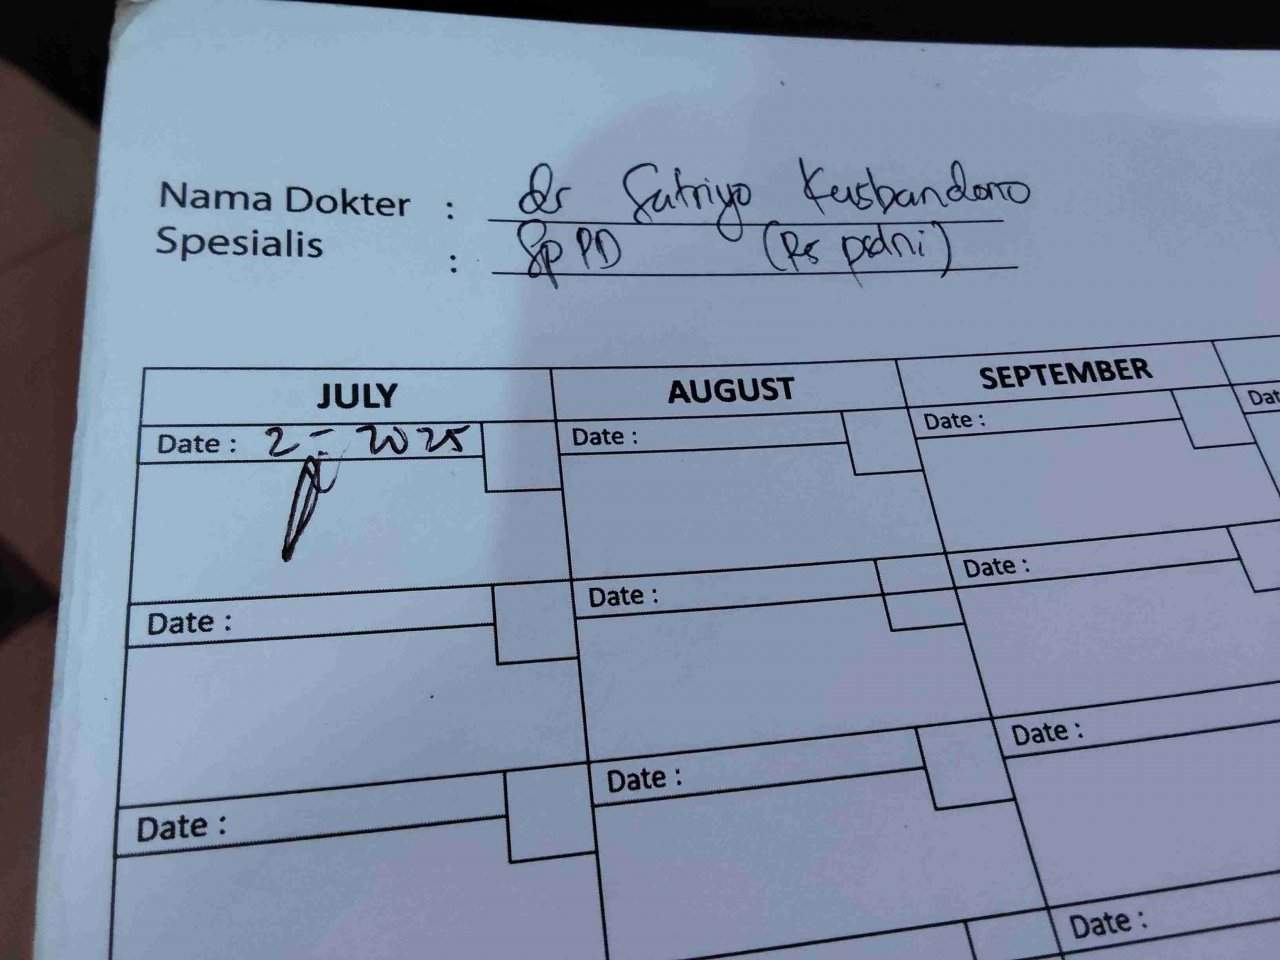 Nama Dokter : dr Satriyo Kusbandono
Spesialis : Sp PD (Rs psdni)
JULY AUGUST SEPTEMBER
Date : 2 - 2025 Date : Date : Dat
Date : Date : Date :
Date : Date : Date :
Date :